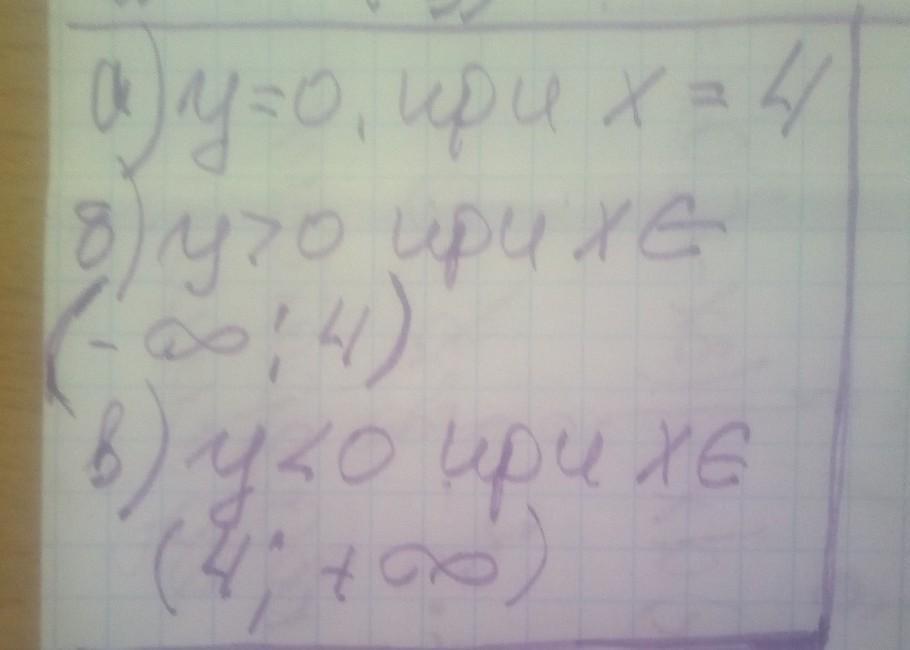 а) y=0, при x = 4
б) y>0 при x∈
(-∞; 4)
в) y<0 при x∈
(4; +∞)